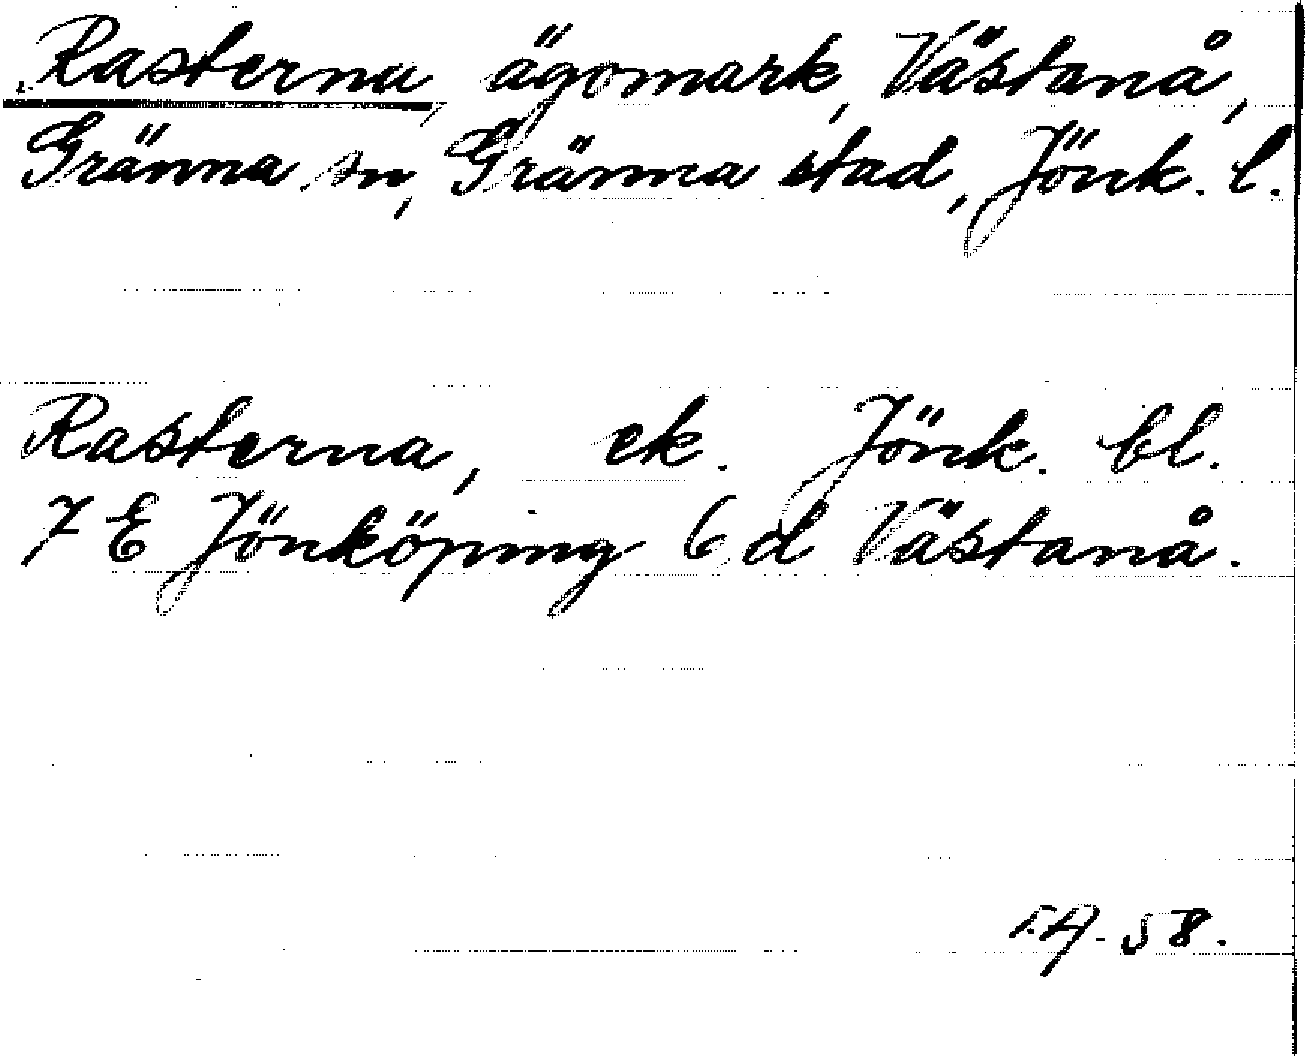 Rasterna, ägomark, Västanå,
Gränna sn, Gränna stad, Jönk. l.
Rasterna, ek. Jönk. bl.
7 E Jönköping 6 d Västanå.
58.